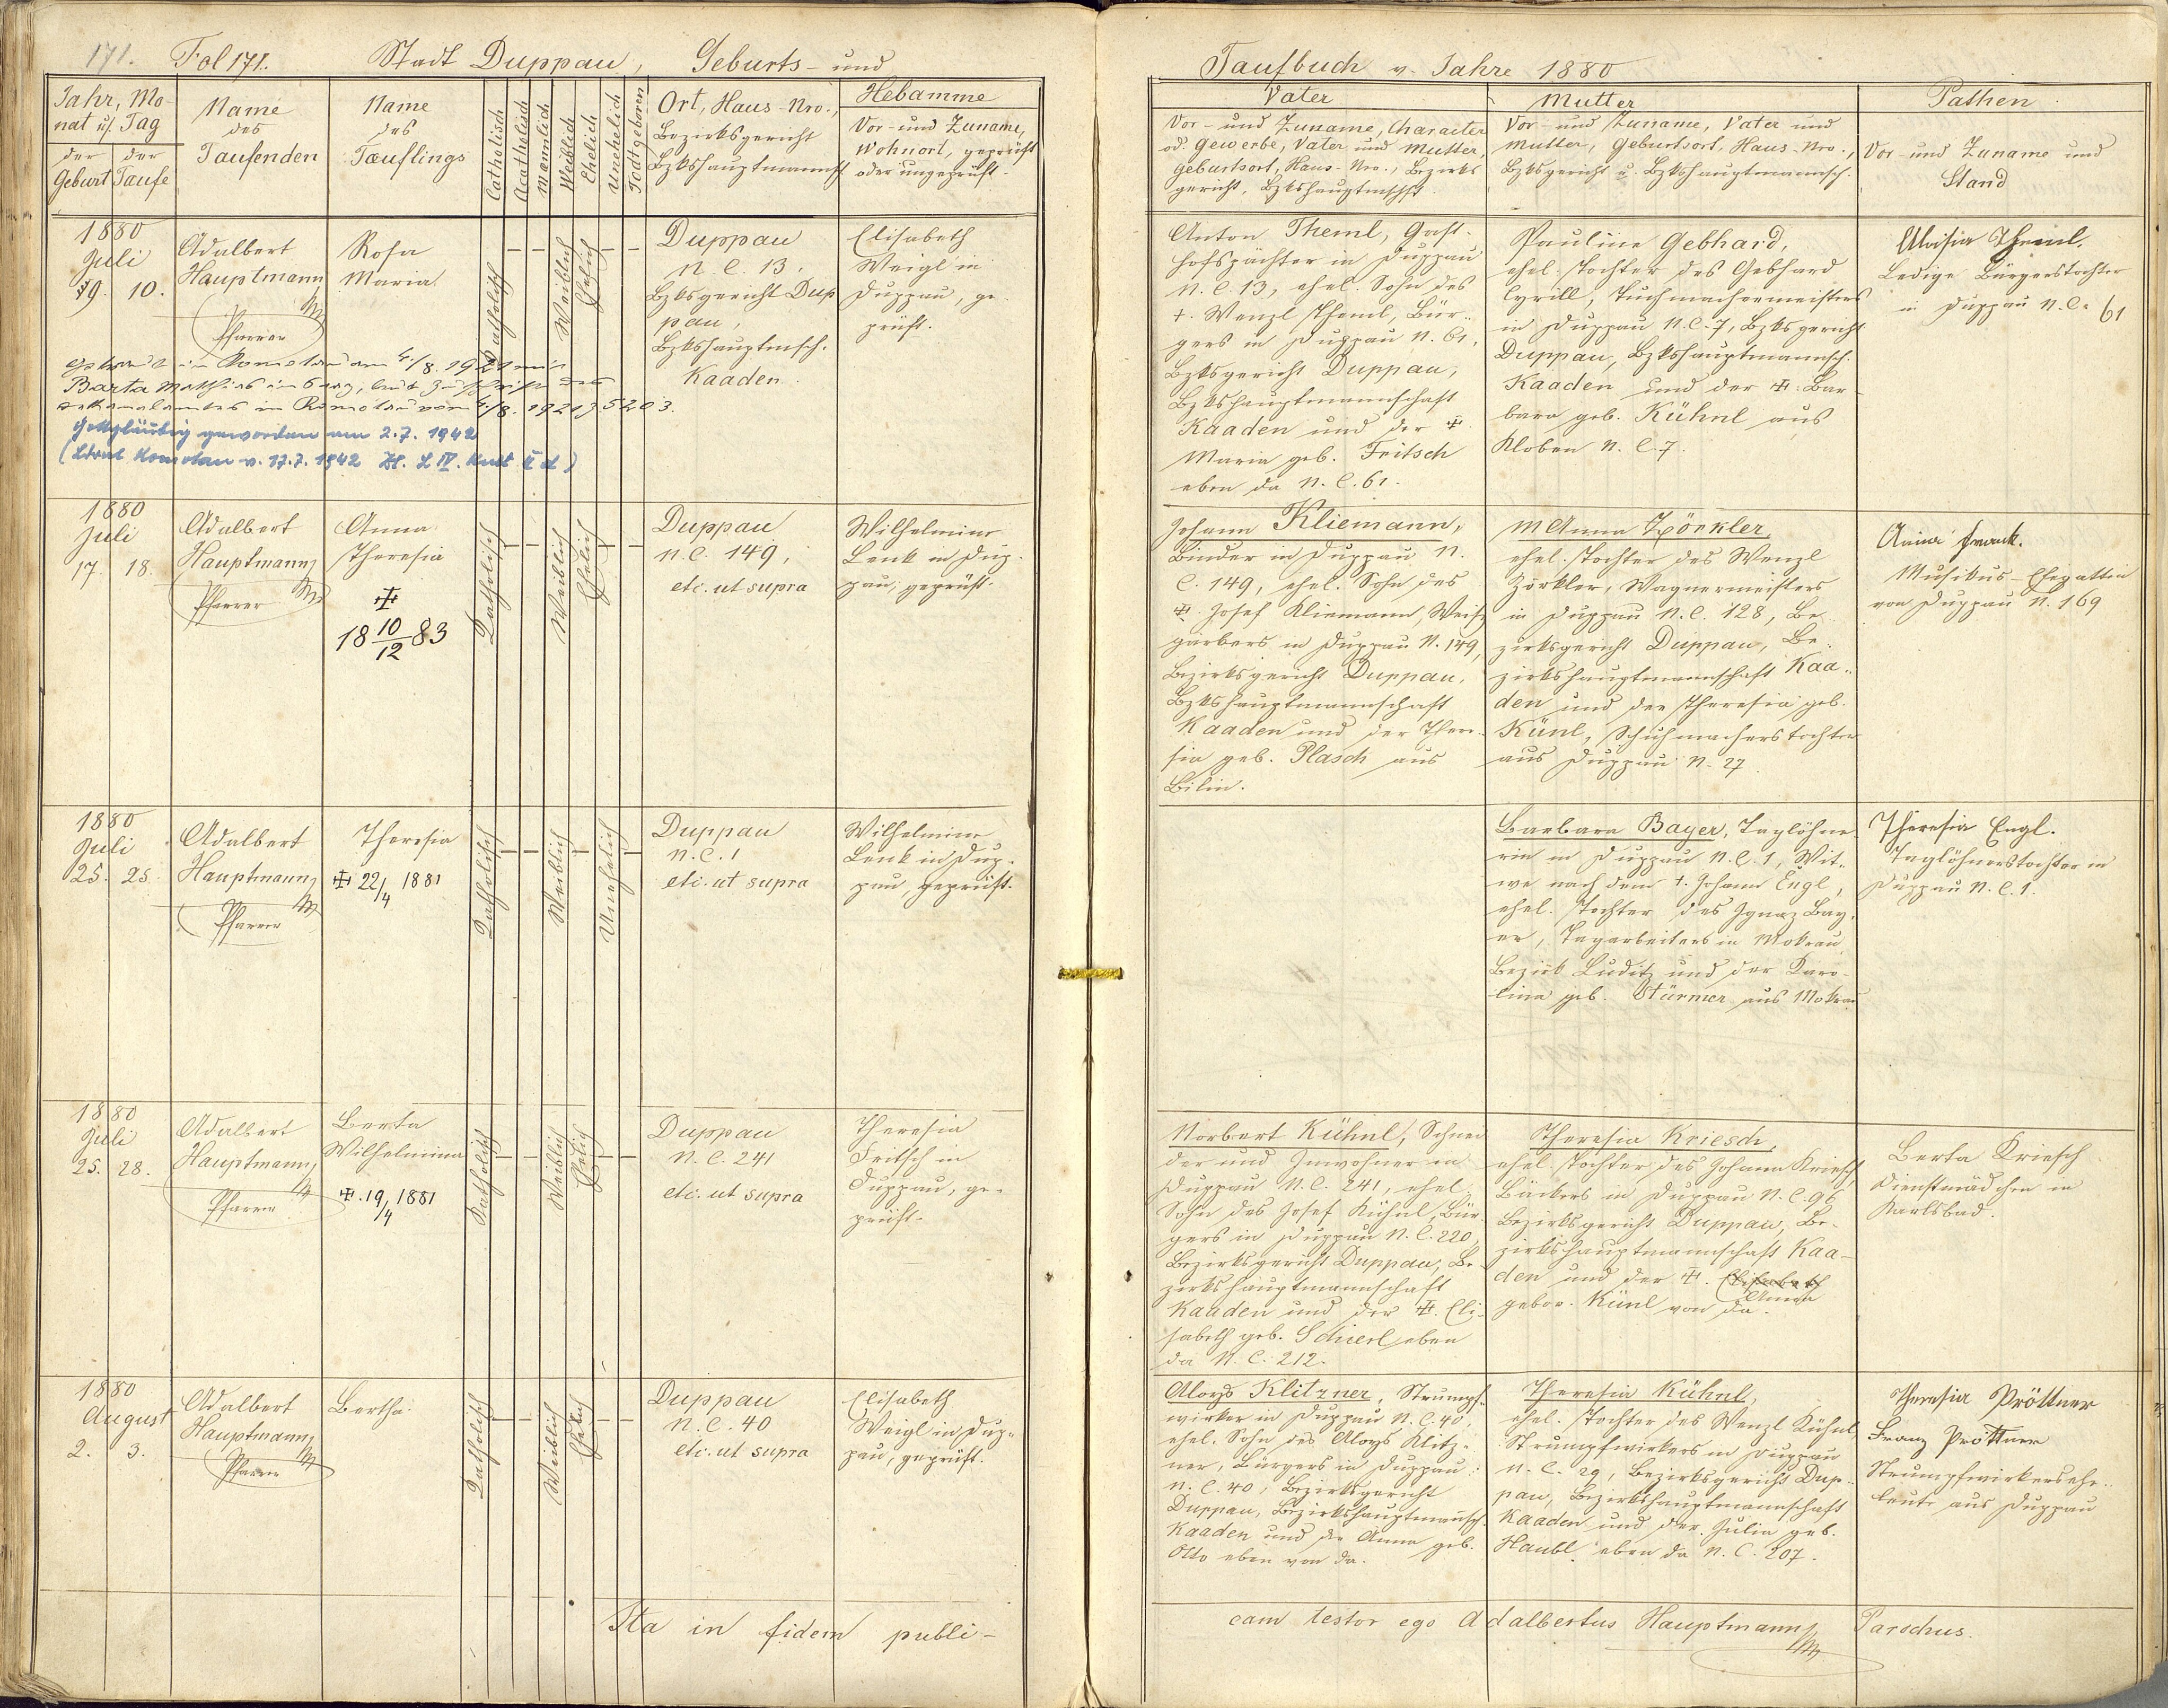 171. Fol 171. Stadt Duppau, Geburts- und
Jahr, Mo-
nat u. Tag
der Geburt
der Taufe
Name
des
Taufenden
Name
des
Täuflings
Catholisch
Acatholisch
Mannlich
Weiblich
Ehelich
Unehelich
Todtgeboren
Ort, Haus-Nro.,
Bezirksgericht
Bzkshauptmannsft
Hebamme
Vor- und Zuname,
Wohnort, geprüft
oder ungeprüft.
1880
Juli
9. 10.
Adalbert
Hauptmann
Pfarrer
Rosa
Maria
Katholisch
Weiblich
Ehelich
Duppau
N. C. 13.
Bzksgericht Dup
pau,
Bzkshauptmsch.
Kaaden
Elisabeth
Weigl in
Duppau, ge-
prüft.
Getraut in Komotau am 4./8. 1921 mit
Barta Mathias
in Komotau vom 4./8. 1921
Gottgläubig geworden am 2.7. 1942
(Ldrat Komotau v. 17.7. 1942
1880
Juli
17. 18.
Adalbert
Hauptmann
Pfarrer
Anna
Theresia
18 10/12 83
Katholisch
Weiblich
Ehelich
Duppau
N. C. 149,
etc. ut supra
Wilhelmine
Lenk in Dup-
pau, geprüft.
1880
Juli
25. 25.
Adalbert
Hauptmann
Pfarrer
Theresia
22/4 1881
Katholisch
Weiblich
Unehelich
Duppau
N. C. 1
etc. ut supra
Wilhelmine
Lenk in Dup-
pau, geprüft.
1880
Juli
25. 28.
Adalbert
Hauptmann
Pfarrer
Berta
Wilhelmina
19/4 1881
Katholisch
Weiblich
Ehelich
Duppau
N. C. 241
etc. ut supra
Theresia
Fritsch in
Duppau, ge-
prüft.
1880
August
2. 3.
Adalbert
Hauptmann
Pfarrer
Bertha
Katholisch
Weiblich
Ehelich
Duppau
N. C. 40
etc. ut supra
Elisabeth
Weigl in Dup-
pau, geprüft.
Ita in fidem publi-
Taufbuch v. Jahre 1880
Vater
Vor- und Zuname, Charakter
od. Gewerbe, Vater und Mutter,
Geburtsort, Haus-Nro., Bezirks
gericht, Bzkshauptmschft.
Mutter
Vor- und Zuname, Vater und
Mutter, Geburtsort, Haus-Nro.,
Bzksgericht u. Bzkshauptmannsch.
Pathen
Vor- und Zuname und
Stand
Anton Theml, Gast-
hofspächter in Duppau
N. C. 13, ehel. Sohn des
†. Wenzl Theml, Bür-
gers in Duppau N. 61,
Bzksgericht Duppau,
Bzkshauptmannschaft
Kaaden und der ‡.
Maria geb. Fritsch
eben da N. C. 61.
Pauline Gebhard,
ehel. Tochter des Gebhard
Cyrill, Tuchmachermeisters
in Duppau N. C. 7, Bzksgericht
Duppau, Bzkshauptmannsch.
Kaaden und der ‡. Bar-
bara geb. Kühnl aus
Kloben N. C. 7.
Aloisia Theml.
Ledige Bürgerstochter
in Duppau N. C. 61
Johann Kliemann,
Binder in Duppau N.
C. 149, ehel. Sohn des
‡. Josef Kliemann, Weiß-
gärbers in Duppau N. 149,
Bezirksgericht Duppau,
Bzkshauptmannschaft
Kaaden und der There-
sia geb. Plasch aus
Bilin.
M Anna Zörkler,
ehel. Tochter des Wenzl
Zörkler, Wagnermeisters
in Duppau N. C. 128, Be-
zirksgericht Duppau, Be-
zirkshauptmannschaft Kaa-
den und der Theresia geb.
Künl, Schuhmacherstochter
aus Duppau N. 27.
Anna Frank.
Musikus-Ehegattin
von Duppau N. 169
Barbara Bayer, Taglöhne-
rin in Duppau N. C. 1, Wit-
we nach dem †. Johann Engl,
ehel. Tochter des Ignaz Bay-
er, Tagarbeiters in Mokrau,
Bezirk Luditz und der Karo-
lina geb. Stürmer aus Mokrau
Theresia Engl.
Taglöhnerstochter in
Duppau N. C. 1.
Norbert Kühnl, Schnei
der und Inwohner in
Duppau N. C. 241, ehel.
Sohn des Josef Kühnl, Bür-
gers in Duppau N. C. 220,
Bezirksgericht Duppau, Be-
zirkshauptmannschaft
Kaaden und der ‡. Eli-
sabeth geb. Schierl eben
da N. C. 212.
Theresia Kriesch,
ehel. Tochter des Johann Kriesch,
Bäckers in Duppau N. C. 96
Bezirksgericht Duppau, Be-
zirkshauptmannschaft Kaa-
den und der ‡. Elisabeth
Anna
gebor. Künl von da.
Berta Kriesch
Dienstmädchen in
Karlsbad.
Aloys Klitzner, Strumpf-
wirker in Duppau N. C. 40,
ehel. Sohn des Aloys Klitz-
ner, Bürgers in Duppau
N. C. 40, Bezirksgericht
Duppau, Bezirkshauptmannsch.
Kaaden und der Anna geb.
Otto eben von da.
Theresia Kühnl,
ehel. Tochter des Wenzl Kühnl,
Strumpfwirkers in Duppau
N. C. 29, Bezirksgericht Dup-
pau, Bezirkshauptmannschaft
Kaaden und der Julia geb.
Haubl eben da N. C. 207.
Theresia Pröttner
Franz Pröttner
Strumpfwirkersehe-
leute aus Duppau
cam testor ego Adalbertus Hauptmann Parochus.